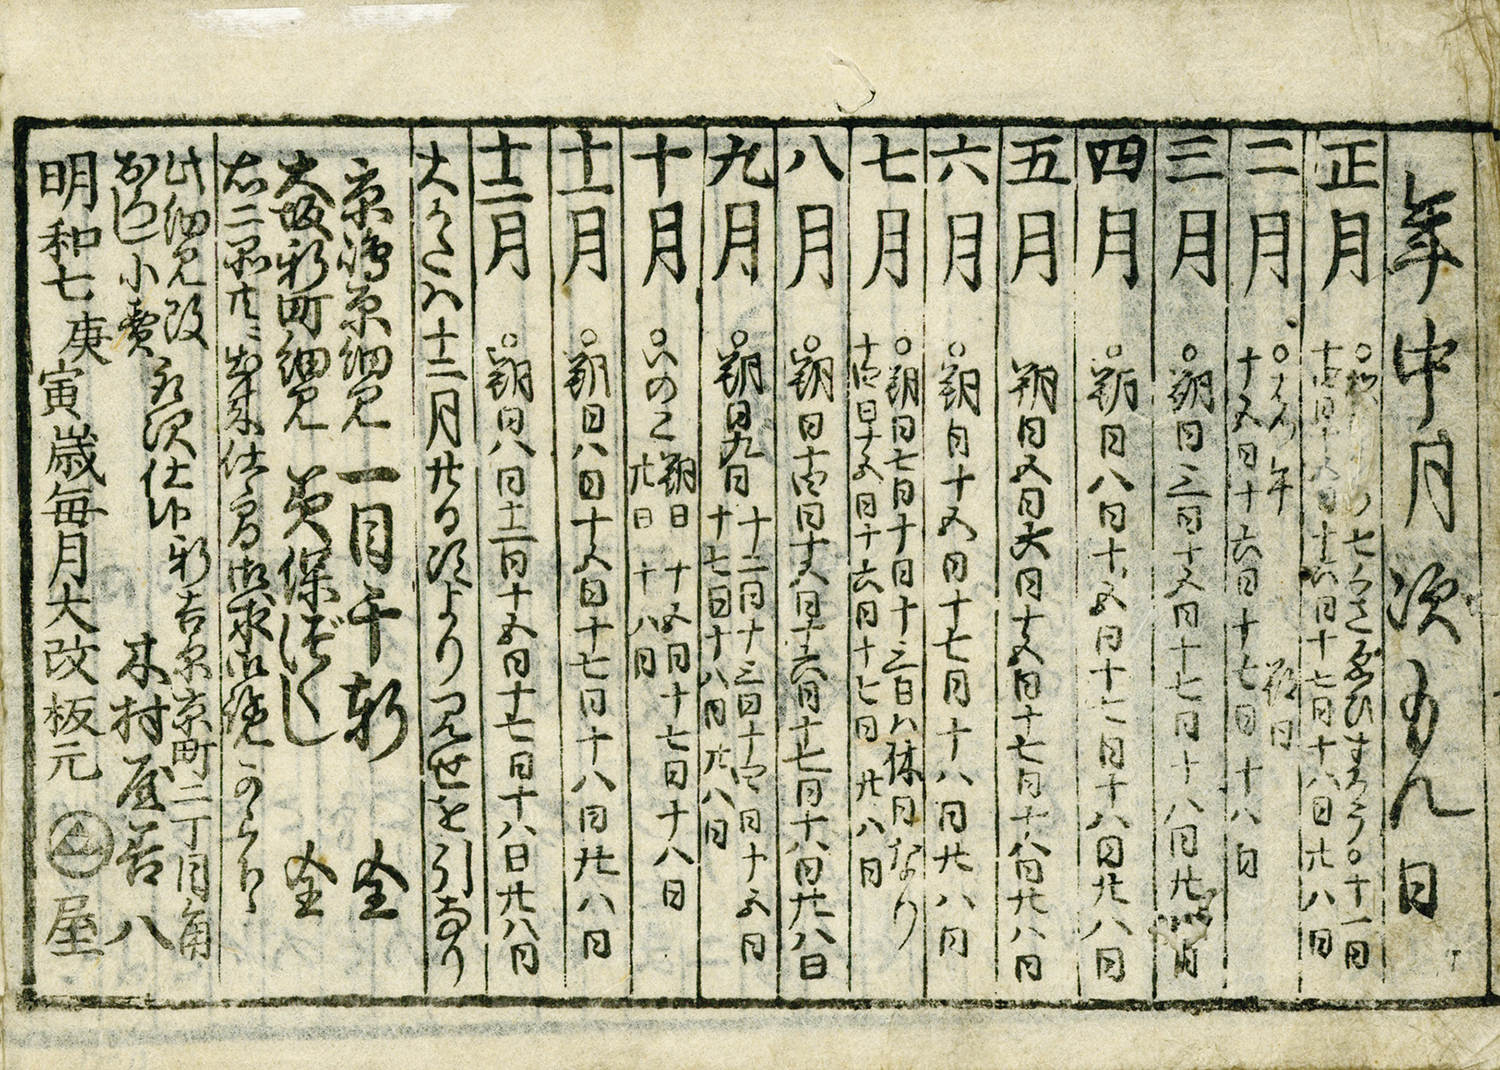 年中月次もん日
正月
七くさゑびすこう○十一日
十四日十五日十六日十七日十八日廿八日
二月
○はつ午 朔日
十五日十六日十七日十八日
三月
○朔日三日十五日十七日十八日廿八日
四月
○朔日八日十五日十七日十八日廿八日
五月
朔日五日六日十五日十七日十八日廿八日
六月
○朔日十五日十七日十八日廿八日
七月
○朔日七日十日十三日ハ休日なり
十四日十五日十六日十七日廿八日
八月
○朔日十四日十五日十六日十七日十八日廿八日
九月
○朔日九日 十二日十三日十四日十五日
十七日十八日廿八日
十月
○いのこ 朔日 十五日十七日十八日
廿日 十八日
十一月
○朔日八日十五日十七日十八日廿八日
十二月
○朔日八日十三日十五日十七日十八日廿八日
大をハ十二月廿日次よりみせを引なり
京嶋原細見 一目千軒 全
大坂新町細見 美保づくし 全
右二品共ニ出来仕候間御求御覧可被下候
此細見改 新吉原京町二丁目角
おろし小賣取次仕候 木村屋善八
明和七庚寅歳毎月大改板元 屋